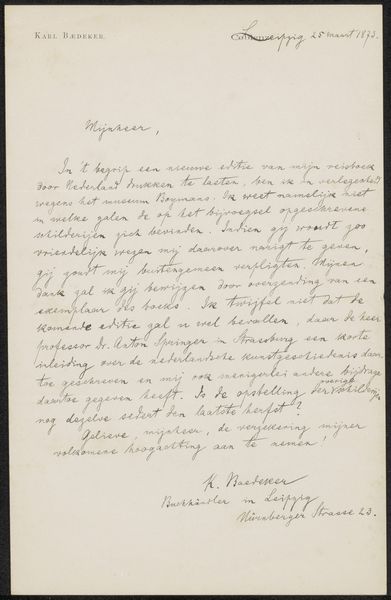 KARL BÆDEKER.
Leipzig 25 maart 1873.
Mijnheer,
In 't begrip een nieuwe editie van mijn reisboek
door Nederland drukken te lasten, ben ik in verlegenheid
wegens het museum Boymans. Ik weet namelijk niet
in welke zalen de op het bijvoegsel opgeschrevene
schilderijen zich bevinden. Indien gij woordt zoo
vriendelijk wezen mij daarover narigt te geven,
gij zoudt mij buitengemeen verpligten. Mijnen
dank zal ik gij bewijzen door overzending van een
exemplaar des boeks. Ik twijfel niet dat de
komende editie zal u wel bevallen, daar de heer
professor Dr. Anton Springer in Strassburg een korte
inleiding over de nederlandsche kunstgeschiedenis daar
toe geschreven en mij ook menigerlei andere bijdrage
daartoe gegeven heeft. Is de opstelling der overige schilderijen
nog dezelve sedert den laatste herfst?
Gelieve, mijnheer, de verzekering mijner
volkomene hoogachting aan te nemen,
K. Baedeker
Buchhändler in Leipzig
Nürnberger Strasse 23.